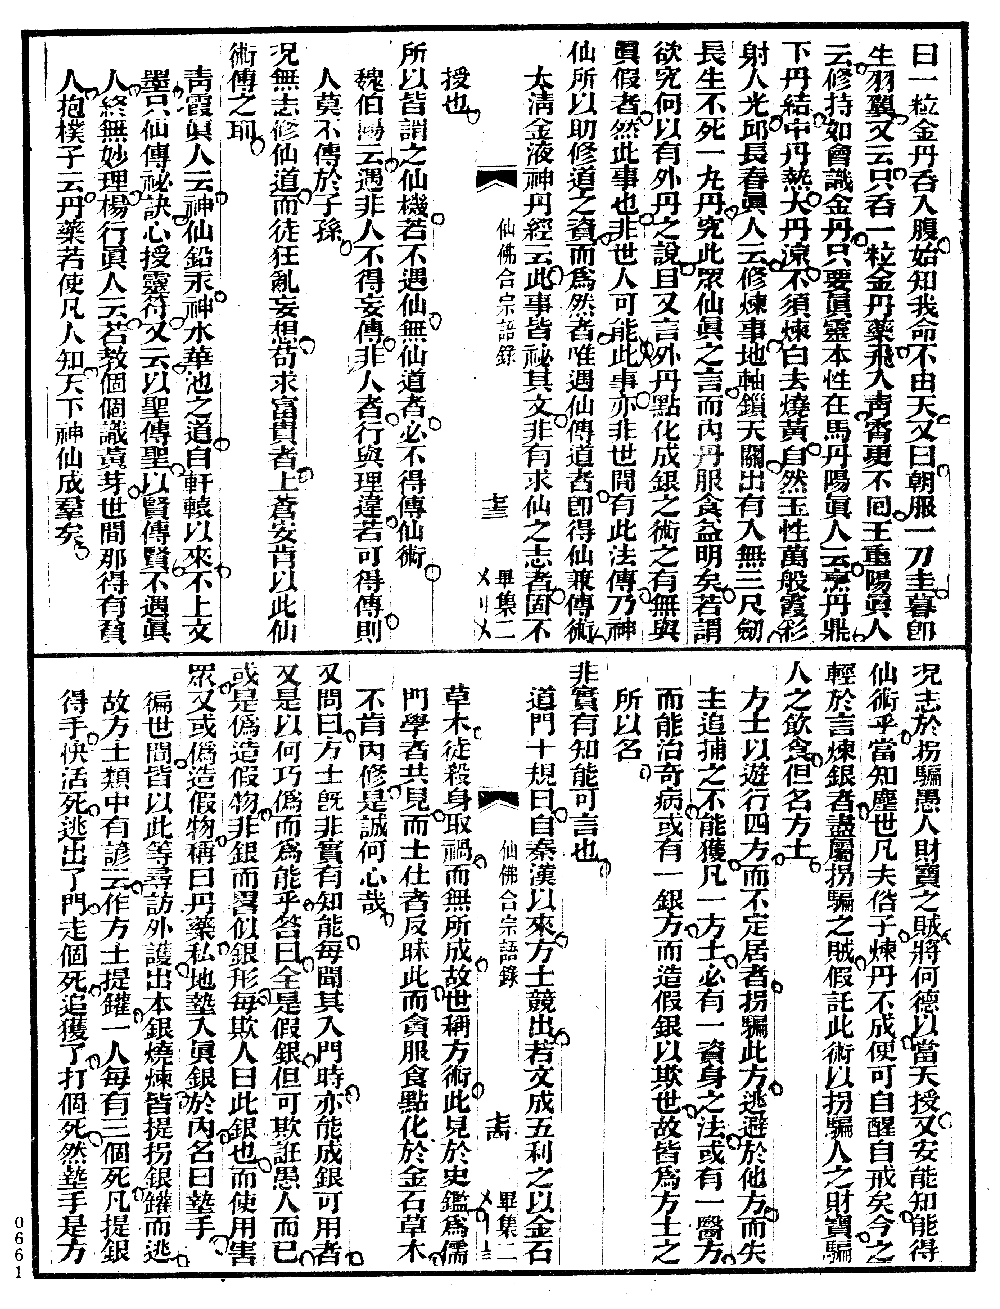 曰一粒金丹吞入腹始知我命不由天又曰朝服一刀圭暮卽
生羽翼又云只吞一粒金丹藥飛入靑霄更不回王重陽眞人
云修持如會識金丹只要眞靈本性在馬丹陽眞人云亯丹鼎
下丹結中丹熱大丹涼不須煉白去燒黃自然玉性萬般霞彩
射人光邱長春眞人云修煉事地軸鎖天關出有入無三尺劒
長生不死一九丹究此眾仙眞之言而內丹服食益明矣若謂
欲究何以有外丹之說且又言外丹點化成銀之術之有無與
眞假者然此事也非世人可能此事亦非世間有此法傳乃神
仙所以助修道之資而爲然者唯遇仙傳道者卽得仙兼傳術
太淸金液神丹經云此事皆祕其文非有求仙之志者固不
仙佛合宗語錄
畢集二
授也
所以皆謂之仙機若不遇仙無仙道者必不得傳仙術
魏伯陽云遇非人不得妄傳非人者行與理違若可得傳則
人莫不傳於子孫
況無志修仙道而徒狂亂妄想苟求富貴者上蒼安肯以此仙
術傳之耶
靑霞眞人云神仙鉛汞神水華池之道自軒轅以來不上文
墨只仙傳祕訣心授靈符又云以聖傳聖以賢傳賢不遇眞
人終無妙理楊行眞人云若教個個識黃芽世間那得有貧
人抱樸子云丹藥若使凡人知天下神仙成羣矣
況志於拐騙愚人財寶之賊將何德以當天授又安能知能得
仙術乎當知塵世凡夫俗子煉丹不成便可自醒自戒矣今之
輕於言煉銀者盡屬拐騙之賊假託此術以拐騙人之財寶騙
人之飮食但名方士
方士以遊行四方而不定居者拐騙此方逃避於他方而失
主追捕之不能獲凡一方士必有一資身之法或有一醫方
而能治奇病或有一銀方而造假銀以欺世故皆爲方士之
所以名
非實有知能可言也
道門十規曰自秦漢以來方士競出若文成五利之以金石
仙佛合宗語錄
畢集二
草木徒殺身取禍而無所成故世稱方術此見於史鑑爲儒
門學者共見而士仕者反昧此而貪服食點化於金石草木
不肯內修是誠何心哉
又問曰方士旣非實有知能每聞其入門時亦能成銀可用者
又是以何巧僞而爲能乎答曰全是假銀但可欺誑愚人而已
或是僞造假物非銀而畧似銀形每欺人曰此銀也而使用害
眾又或僞造假物稱曰丹藥私地墊入眞銀於內名曰墊手
徧世間皆以此等尋訪外護出本銀燒煉皆提拐銀鑵而逃
故方士類中有諺云作方士提鑵一人每有三個死凡提銀
得手快活死逃出了門走個死追獲了打個死然墊手是方
0661